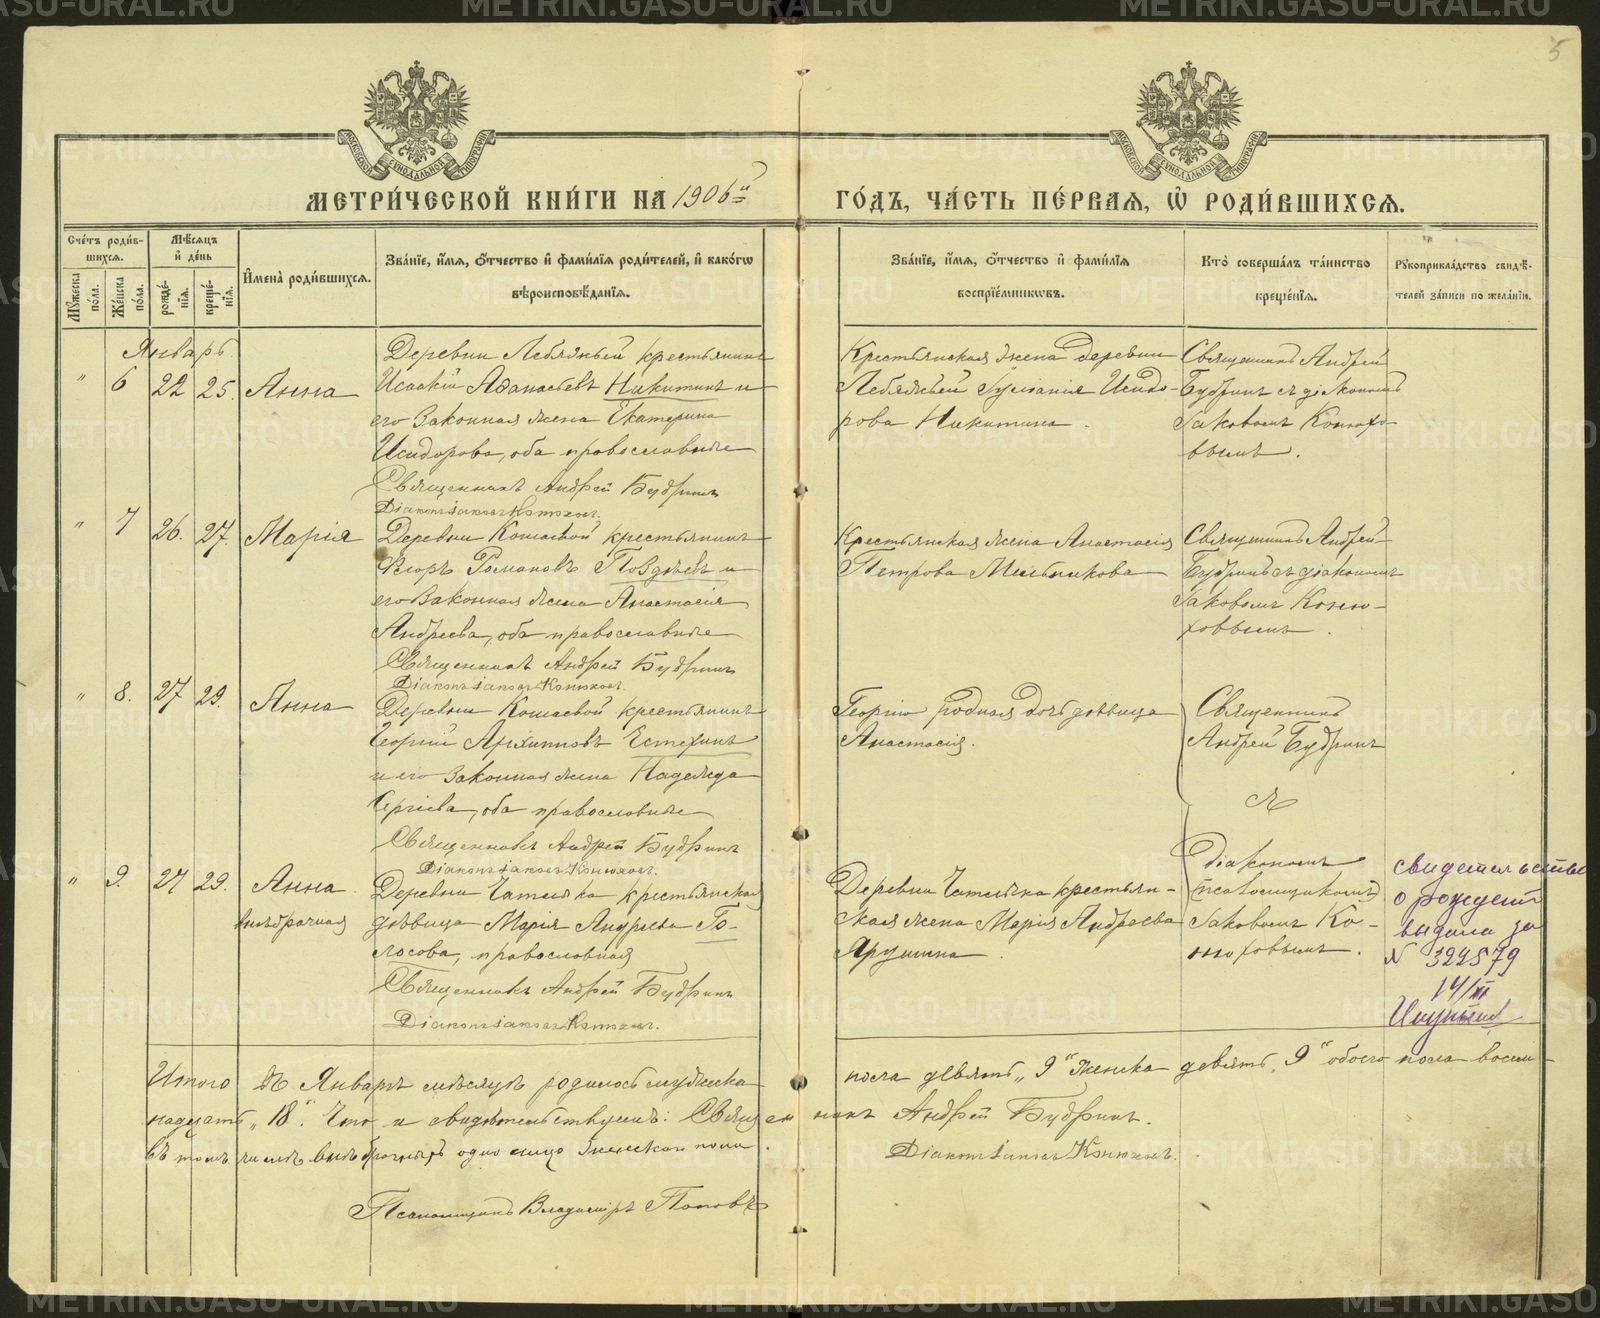 5
МЕТРИ́ЧЕСКОЙ КНИ́ГИ НА 1906й
ГО́ДЪ, ЧА́СТЬ ПЕ́РВАЯ, Ѡ РОДИ́ВШИХСЯ.
Сче́тъ роди́в-
шихся.
Мѣ́сяцъ
и де́нь
Му́жеска
по́ла.
Же́нска
по́ла.
рожде́-
нія.
креще́-
нія.
Имена̀ роди́вшихся.
Зва́ніе, и́мя, о́тчество и фами́лія роди́телей, и како́гѡ
вѣроисповѣ́данія.
Зва́ніе, и́мя, о́тчество и фами́лія
воспріе́мникѡвъ.
Кто̀ соверша́лъ та́инство
креще́нія.
Рукоприкла́дство свидѣ́-
телей за́писи по жела́нію.
Январь.
" 6 22 25. Анна
Деревни Лебяжьей крестьянинъ
Исаакій Аѳанасьевъ Никитинъ и
его законная жена Екатерина
Исидорова, оба православные
Священникъ Андрей Будринъ
Діаконъ Іаковъ Конюховъ.
Крестьянская жена деревни
Лебяжьей Іуліанія Исидо-
рова Никитина.
Священникъ Андрей
Будринъ съ діакономъ
Іаковомъ Конюхо-
вымъ.
" 7 26. 27. Марія
Деревни Кошаевой крестьянинъ
Романовъ и
его законная жена Анастасія
Андреева, оба православные
Священникъ Андрей Будринъ
Діаконъ Іаковъ Конюховъ.
Крестьянская жена Анастасія
Петрова Мельникова
Священникъ Андрей
Будринъ съ діакономъ
Іаковомъ Коню-
ховымъ.
" 8. 27 29. Анна
Деревни Кошаевой крестьянинъ
Георгій Архиповъ Естехинъ
и его законная жена Надежда
Сергіева, оба православные
Священникъ Андрей Будринъ
Діаконъ Іаковъ Конюховъ.
Георгію родная дочь дѣвица
Анастасія.
Священникъ
Андрей Будринъ
съ
" 9. 27 29. Анна
внѣбрачная
Деревни крестьянская
дѣвица Марія Андреева Го-
лосова, православная
Священникъ Андрей Будринъ
Діаконъ Іаковъ Конюховъ.
Деревни крестьян-
ская жена Марія Андреева
Ярушина.
діакономъ
(псаломщикомъ)
Іаковомъ Ко-
нюховымъ.
свидетельство
о рожден
выдана за
№ 322579
14/XI
Итого въ Январѣ мѣсяцѣ родилось мужеска пола девять "9" женска девять "9" обоего пола восем-
надцать "18". Что и свидѣтельствуемъ: Священникъ Андрей Будринъ.
въ томъ числѣ внѣбрачныхъ одно лицо женскаго пола.
Діаконъ Іаковъ Конюховъ.
Псаломщикъ Владиміръ Поповъ
METRIKI.GASO-URAL.RU